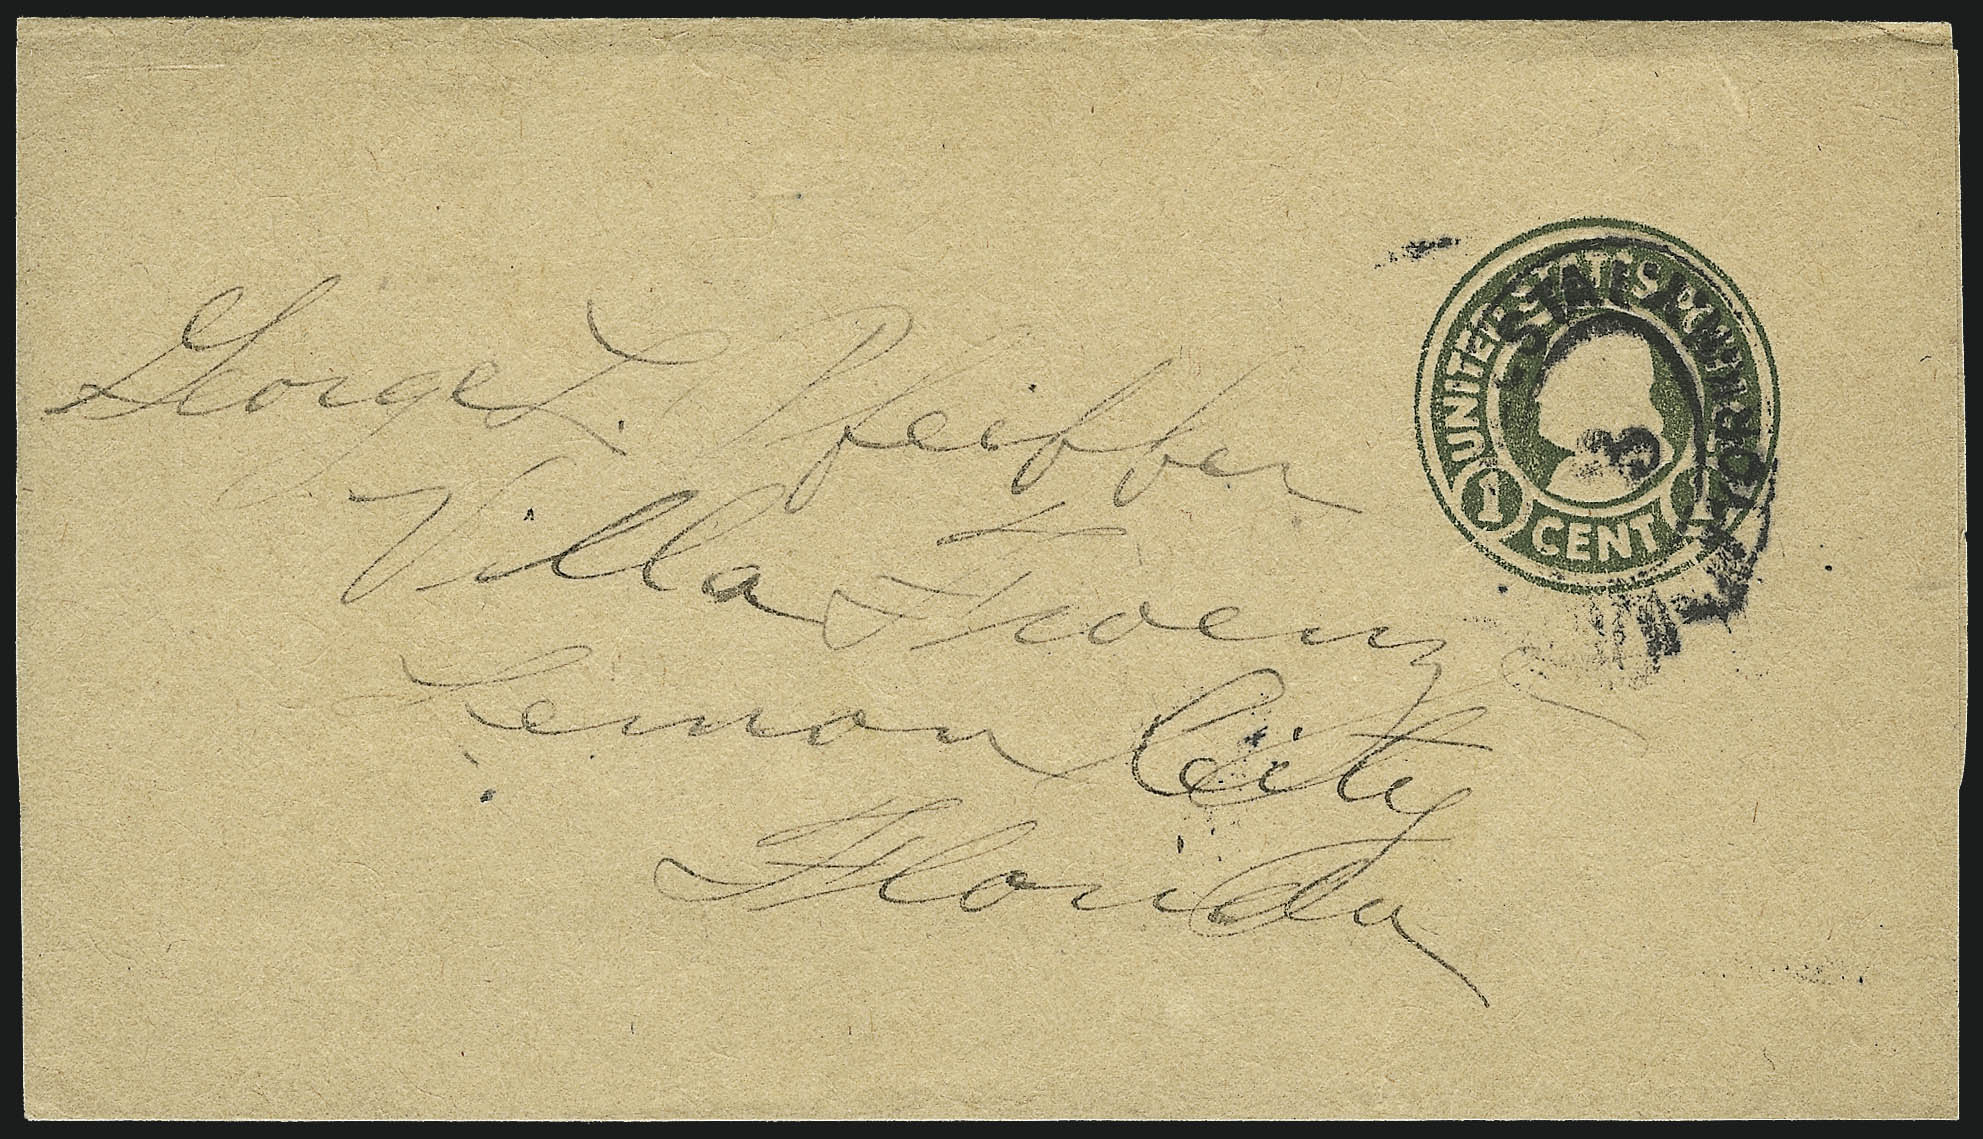 George L. Pfeiffer
Villa
Lemon City
Florida
UNITED STATES POSTAGE
1 CENT 1
STA.
3